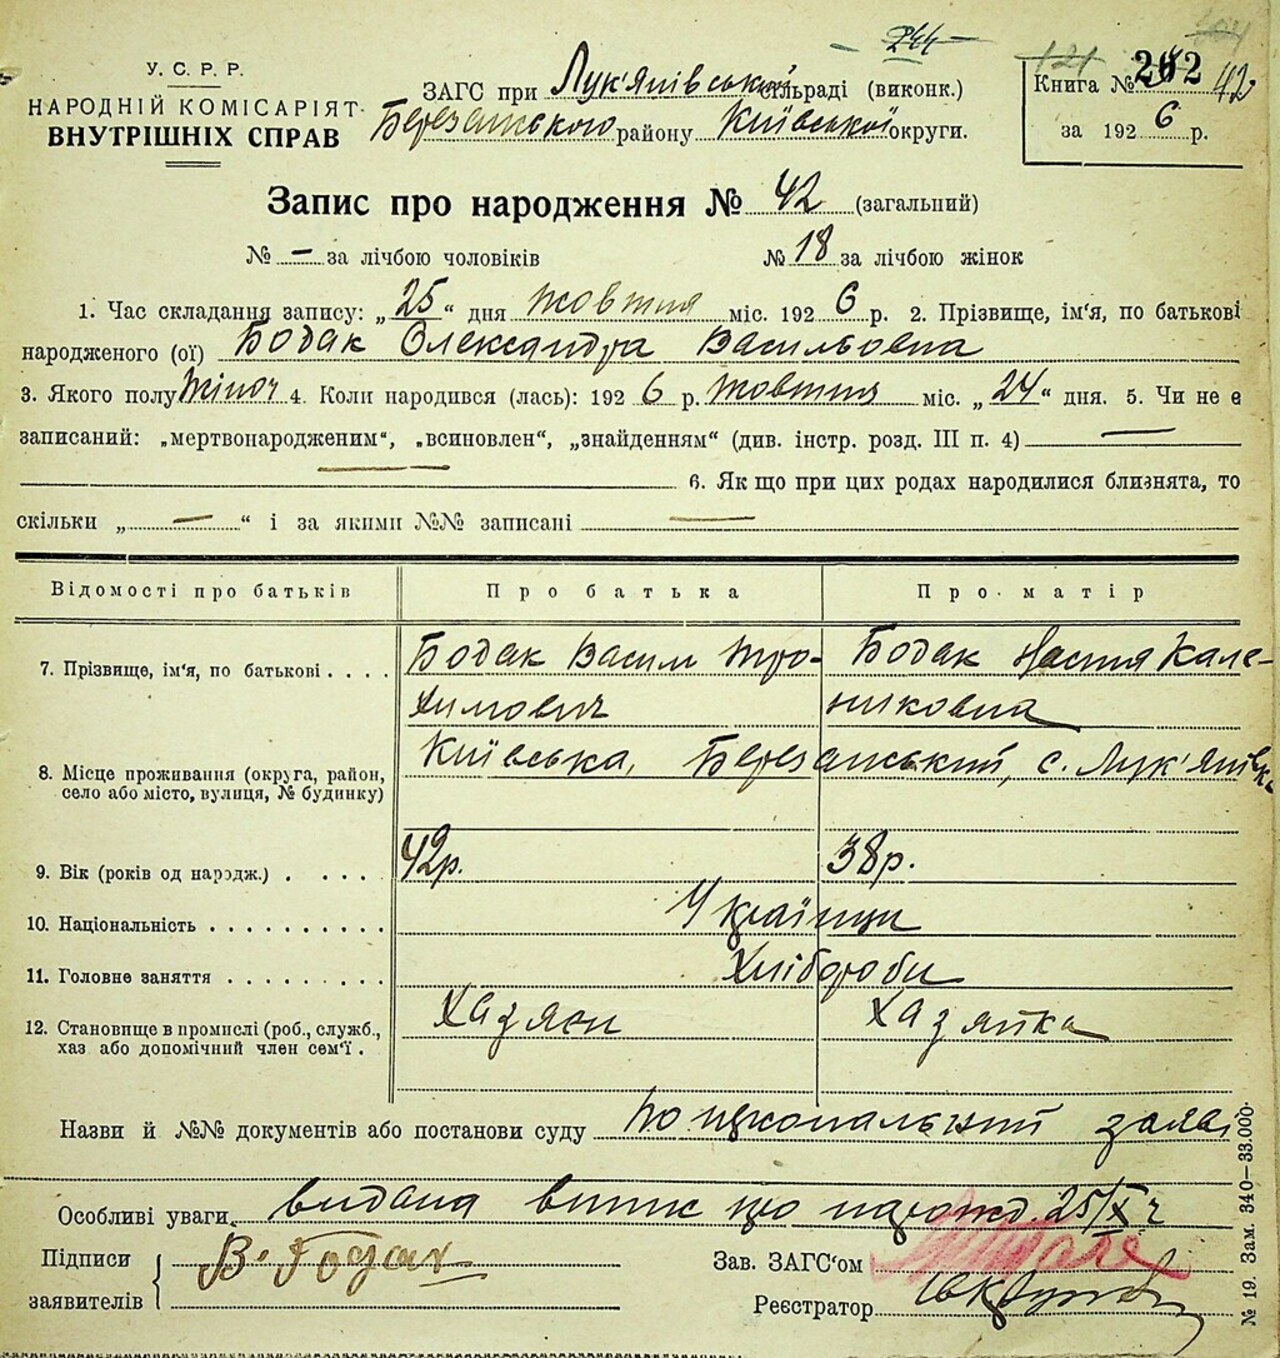 У. С. Р. Р.
НАРОДНІЙ КОМІСАРІЯТ
ВНУТРІШНІХ СПРАВ
244
ЗАГС при Лук'янівській сільраді (виконк.)
Березанського району Київської округи.
Книга № 202 42
за 1926 р.
Запис про народження № 42 (загальний)
№ — за лічбою чоловіків № 18 за лічбою жінок
1. Час складання запису: „25“ дня жовтня міс. 1926 р. 2. Прізвище, ім'я, по батькові
народженого (ої) Бодак Олександра Васильовна
3. Якого полу жіноч 4. Коли народився (лась): 1926 р. жовтня міс. „24“ дня. 5. Чи не є
записаний: „мертвонародженим“, „всиновлен“, „знайденням“ (див. інстр. розд. III п. 4) —
— 6. Як що при цих родах народилися близнята, то
скільки „—“ і за якими №№ записані —
Відомості про батьків Про батька Про матір
7. Прізвище, ім'я, по батькові . . . . Бодак Васил Тро- Бодак Настя Кале-
химович никовна
8. Місце проживання (округа, район, Київська, Березанський, с. Лук'янівка
село або місто, вулиця, № будинку)
9. Вік (років од народж.) . . . . 42р. 38р.
10. Національність . . . . . . . . . . Українци
11. Головне заняття . . . . . . . . . Хлібороби
12. Становище в промислі (роб., служб., Хазяєн Хазяйка
хаз або допомічний член сем'ї .
Назви й №№ документів або постанови суду по заяві
Особливі уваги. видана випис про народж. 25/X
Підписи В. Бодак Зав. ЗАГС'ом
заявителів Реєстратор
№ 19. Зам. 340—33.000.